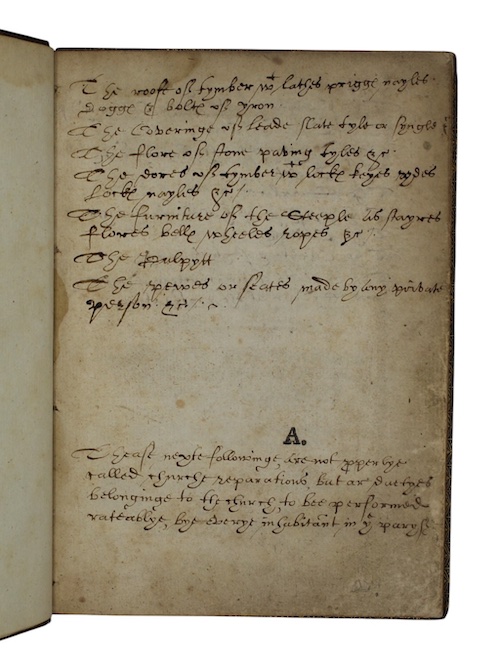 The rooffe of tymber wt lathes prigges nayles
dogges & boltes of yron
The Coveringe of leade slate tyle or syngle
The flore of stone paving tyles &c
The dores of tymber wt lockes keyes
lockes nayles &c
The furniture of the Steeple as stayres
flores belles wheeles ropes &c
The Pulpytt
The pewes or seates made by any private
person &c
A.
Thease nexte followinge, are not pperlye
called churche reparations but are duetyes
belonginge to the church, to bee performed
rateablye, bye everye inhabitant in ye parysh